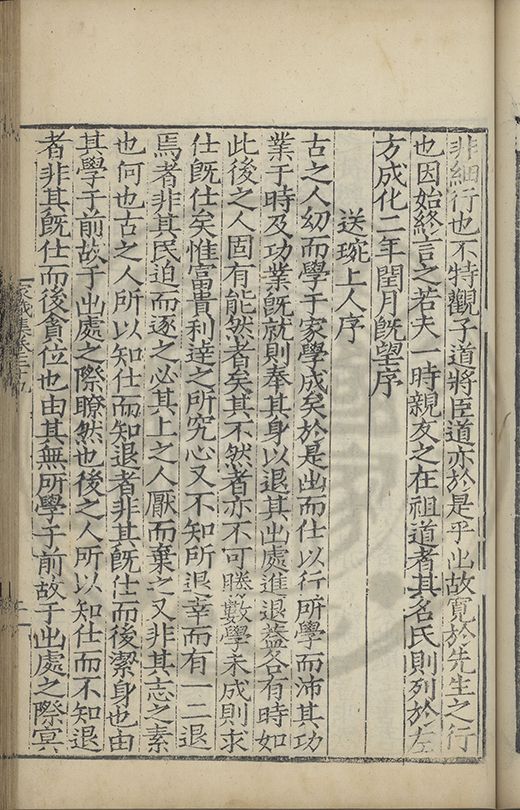 非細行也不特觀子道將臣道亦於是乎出故寬於先生之行
也因始終言之若夫一時親友之在祖道者其名氏則列於左
方成化二年閏月既望序
送琬上人序
古之人幼而學于家學成矣於是出而仕以行所學而沛其功
業于時及功業既就則奉其身以退其出處進退蓋各有時如
此後之人固有能然者矣其不然者亦不可勝數學未成則求
仕既仕矣惟富貴利達之所究心又不知所退幸而有一二退
焉者非其民迫而逐之必其上之人厭而棄之又非其志之素
也何也古之人所以知仕而知退者非其既仕而後潔身也由
其學于前故于出處之際瞭然也後之人所以知仕而不知退
者非其既仕而後貪位也由其無所學于前故于出處之際冥
家藏集卷三十九